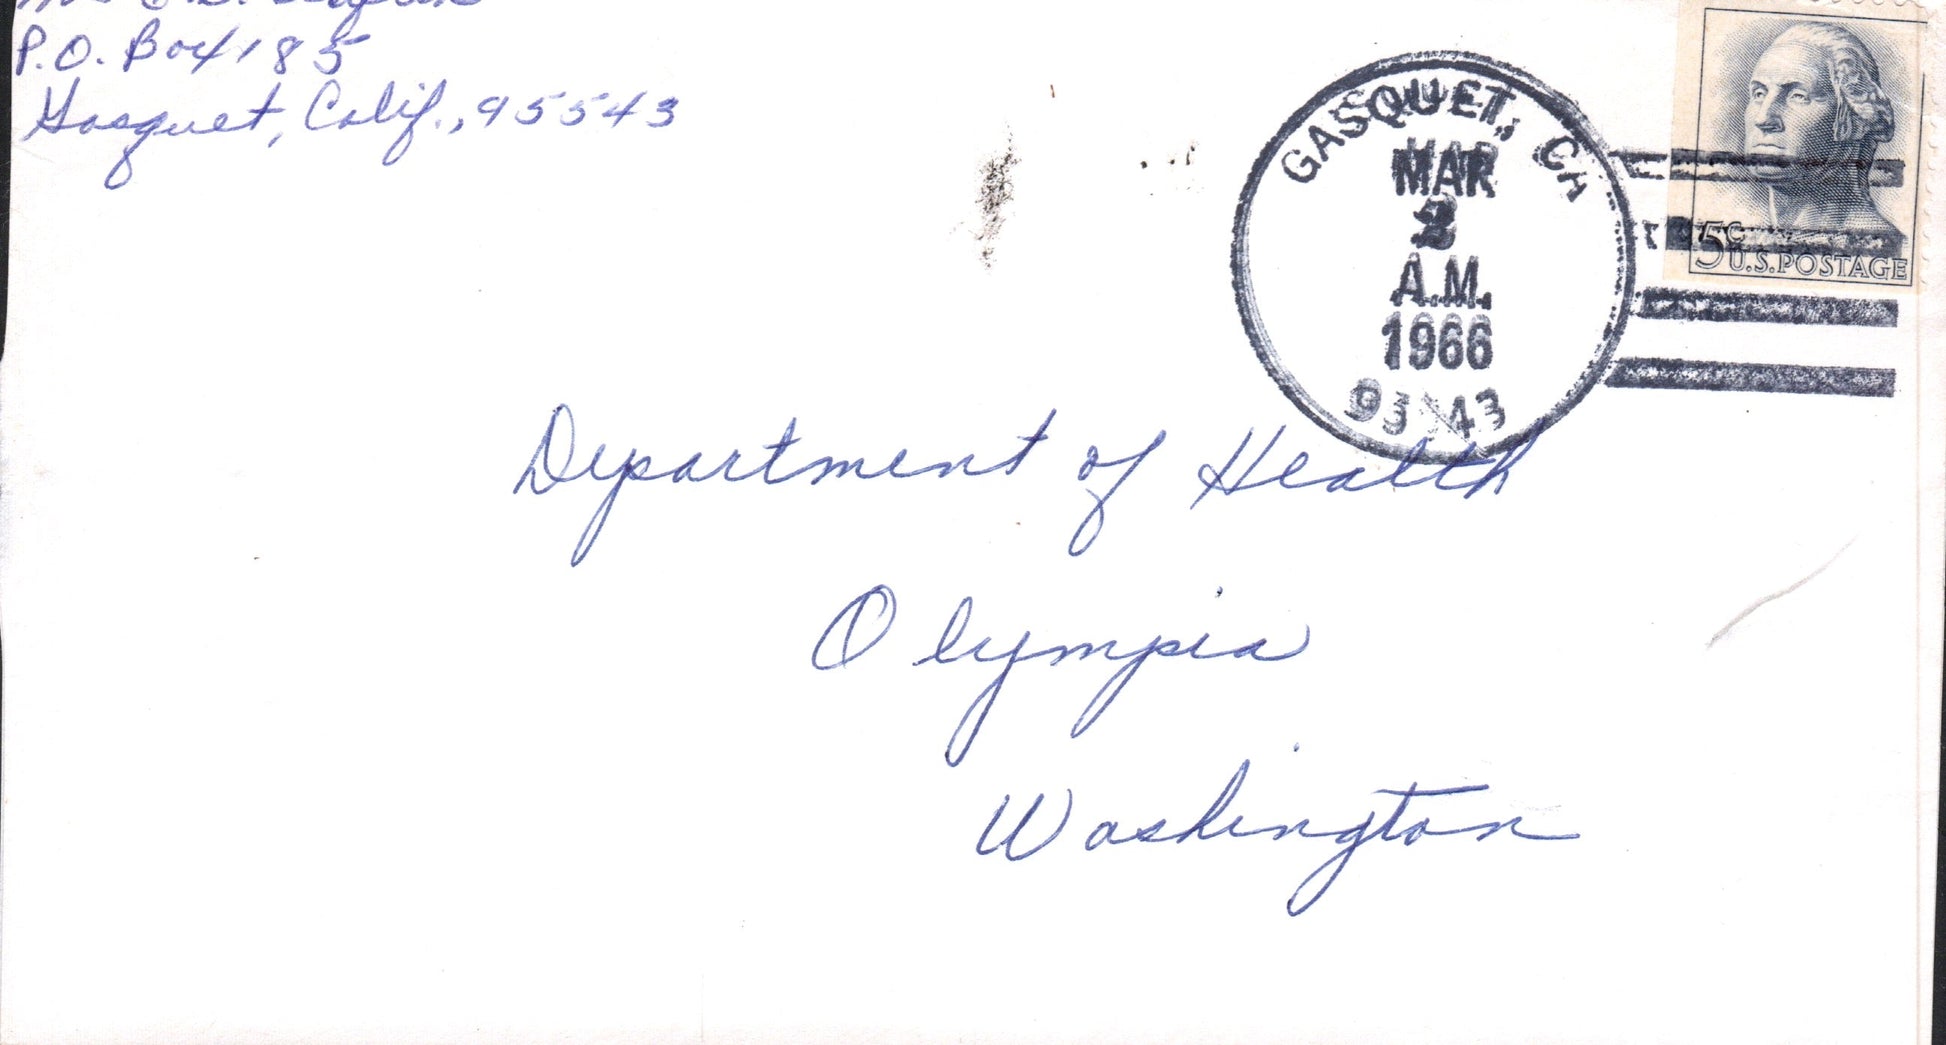 P.O. Box 185
Gasquet, Calif., 95543
GASQUET, CA
MAR
2
A.M.
1966
5¢
U.S. POSTAGE
Department of Health
Olympia
Washington